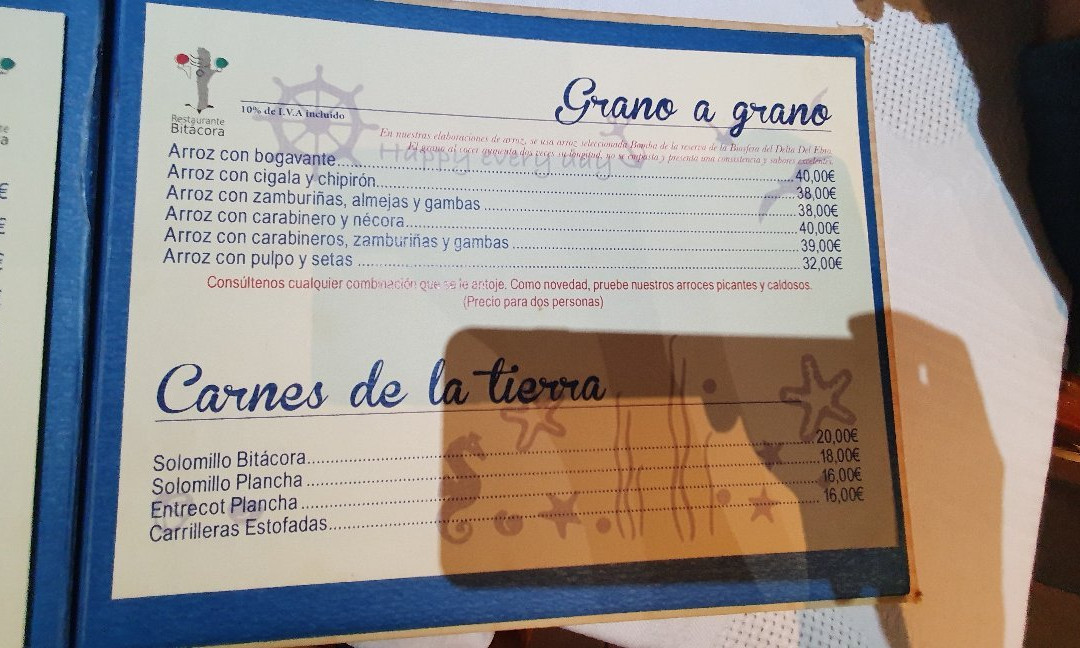 Restaurante
Bitácora
10% de I.V.A incluido
Grano a grano
En nuestras elaboraciones de arroz, se usa arroz seleccionado Bomba de la reserva de la Buafera del Delta Del Ebro.
El grano al cocer aumenta dos veces su longitud, no se empasta y presenta una consistencia y sabores excelentes.
Happy every day
Arroz con bogavante 40,00€
Arroz con cigala y chipirón 38,00€
Arroz con zamburiñas, almejas y gambas 38,00€
Arroz con carabinero y nécora 40,00€
Arroz con carabineros, zamburiñas y gambas 39,00€
Arroz con pulpo y setas 32,00€
Consúltenos cualquier combinación que se le antoje. Como novedad, pruebe nuestros arroces picantes y caldosos.
(Precio para dos personas)
Carnes de la tierra
Solomillo Bitácora 20,00€
Solomillo Plancha 18,00€
Entrecot Plancha 16,00€
Carrilleras Estofadas 16,00€